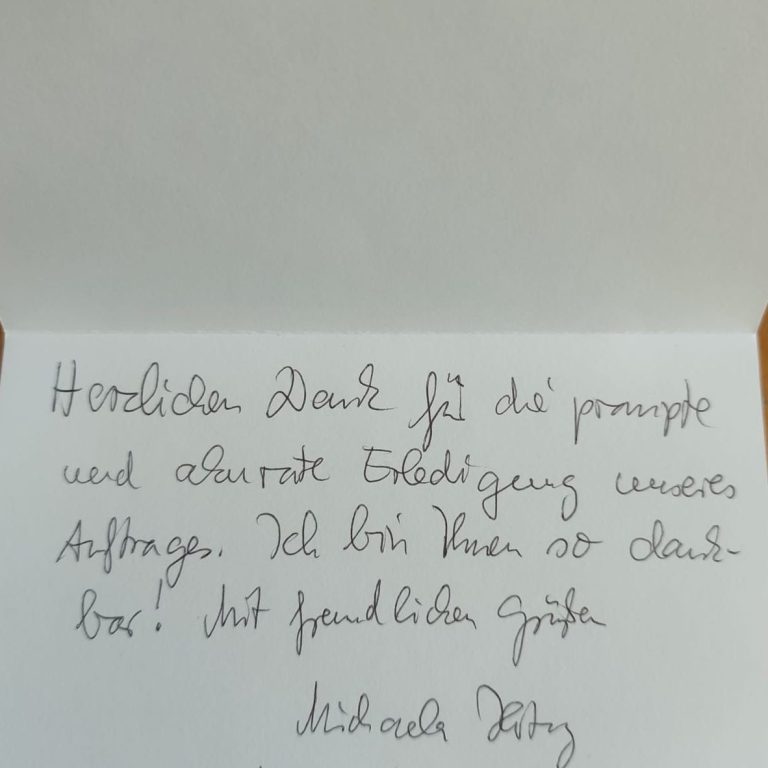 Herzlichen Dank für die prompte
und akurate Erledigung unseres
Auftrages. Ich bin Ihnen so dank-
bar! Mit freundlichen Grüßen
Michaela